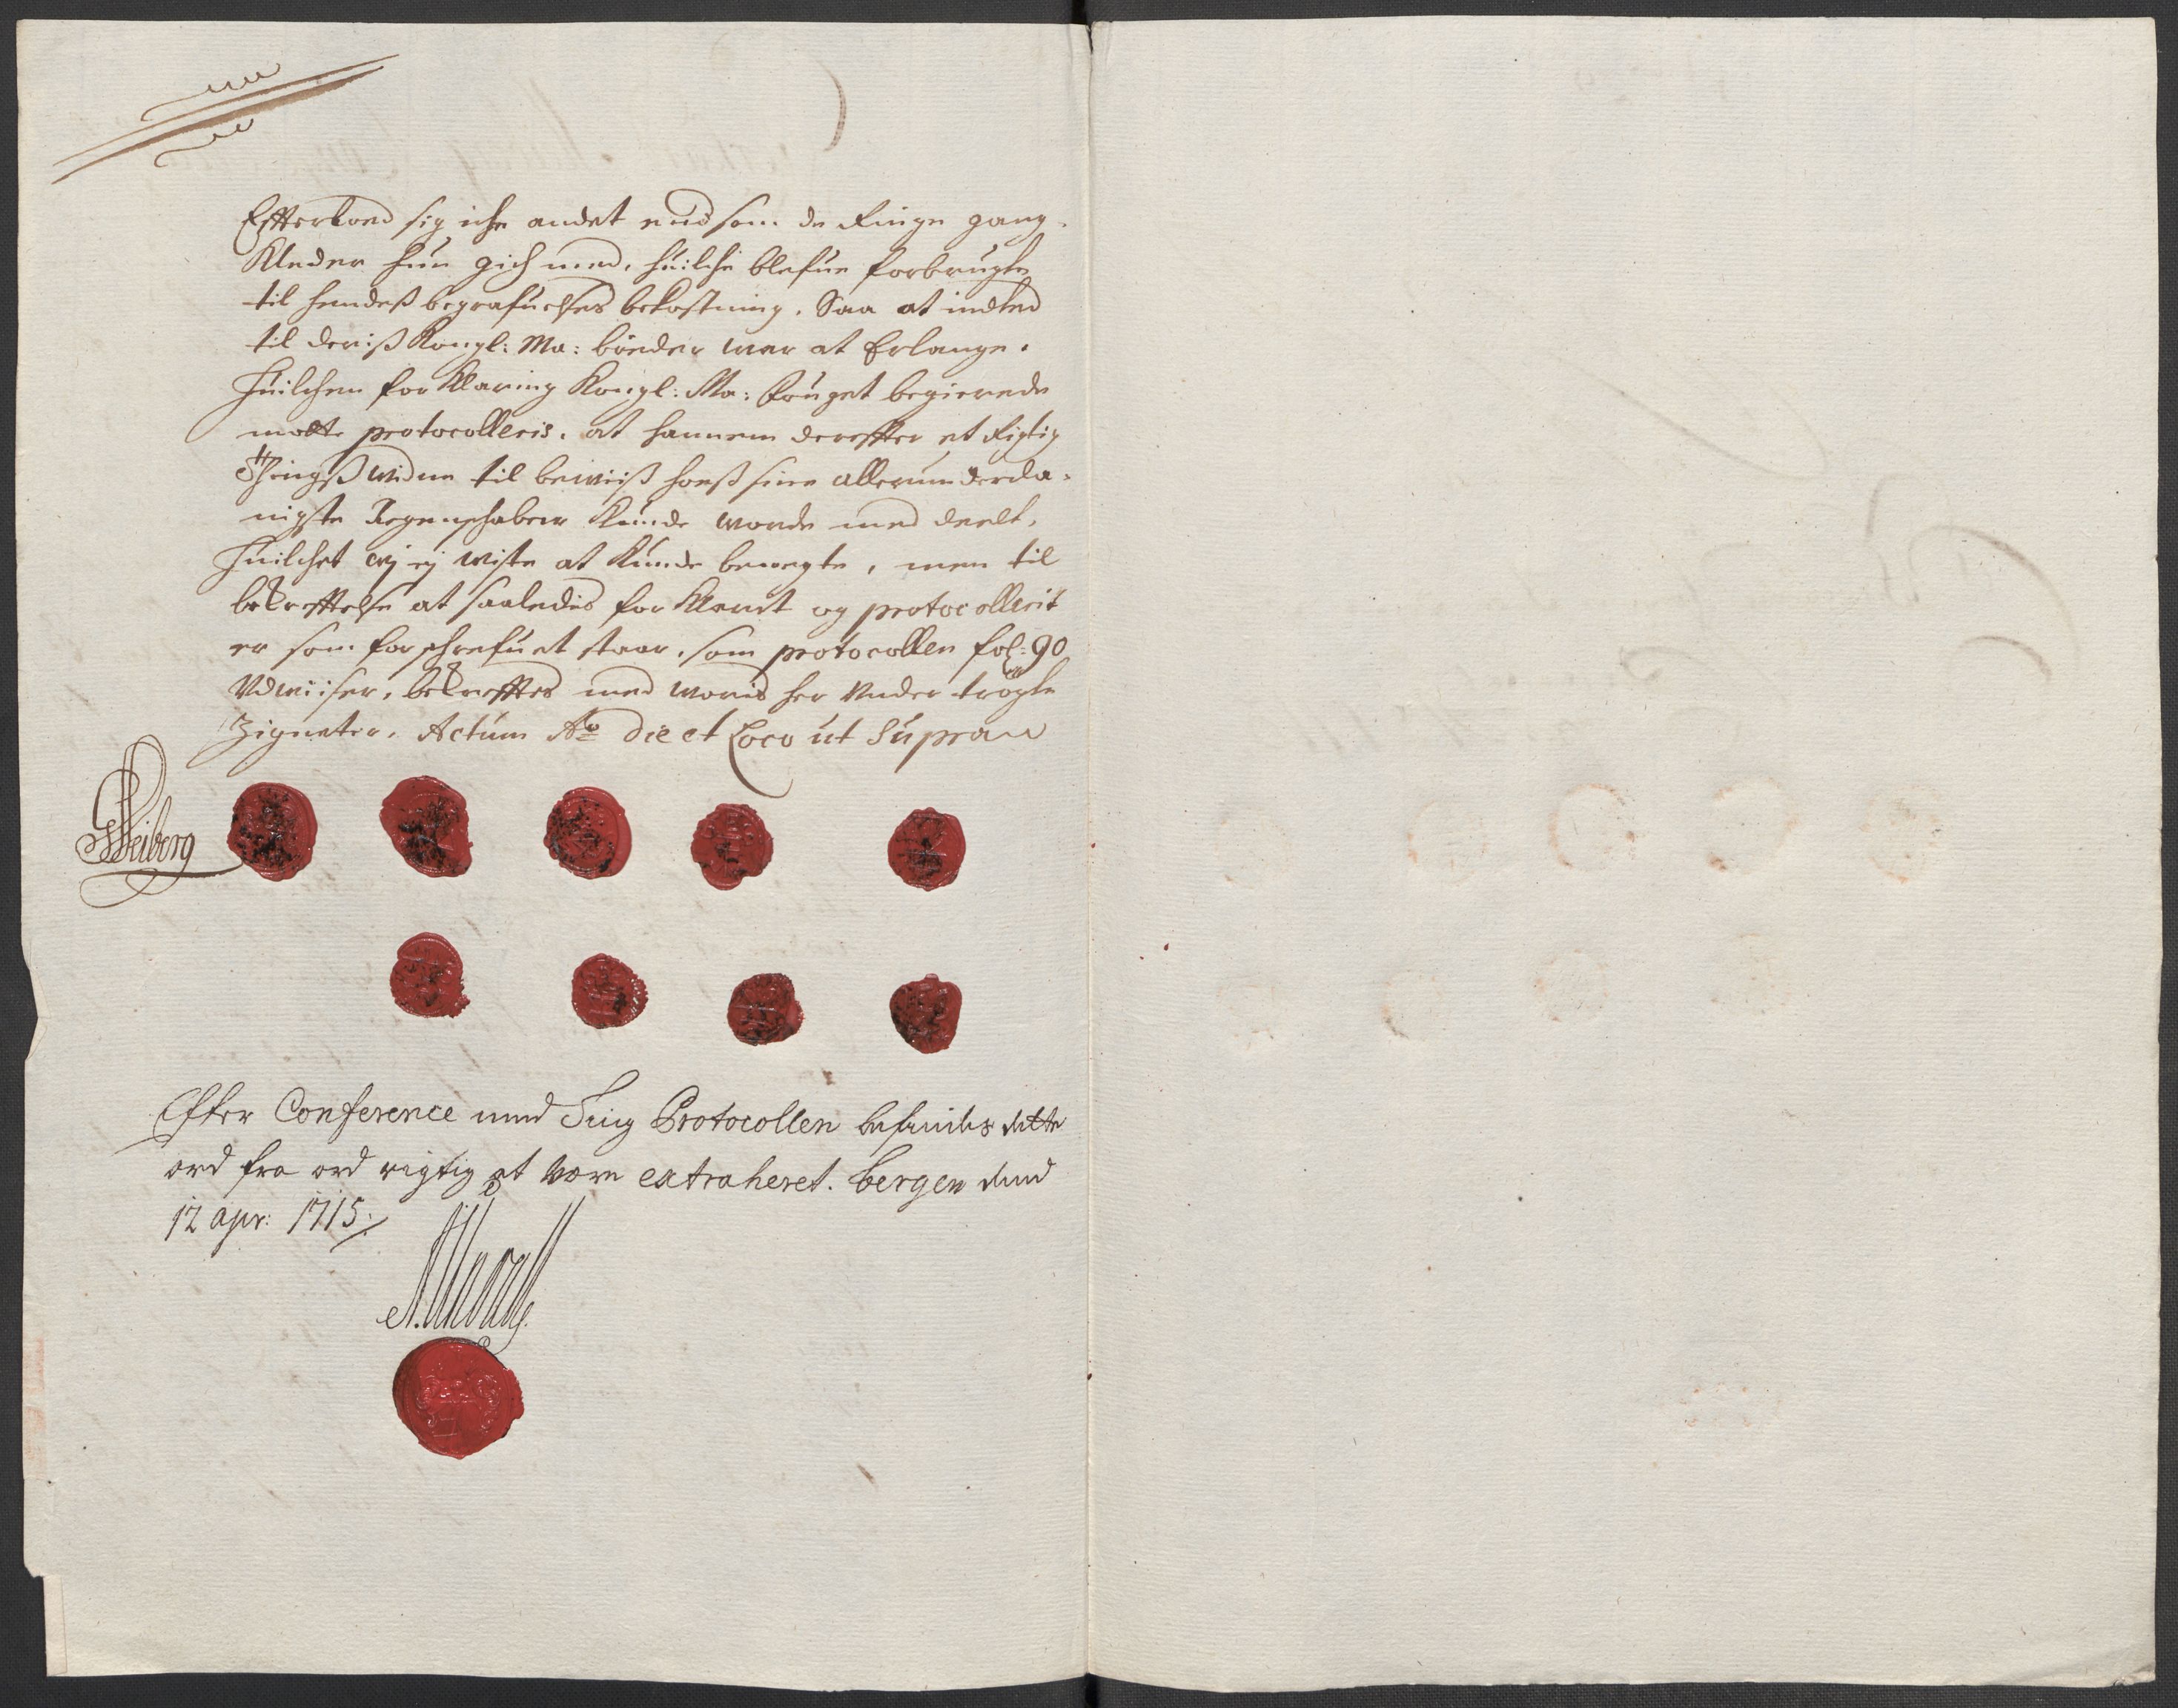 Effterloed sig iche andet end som de Ringe gang-
Kleder hun gich med, huilche blefue forbrugte
til hendeß begrafuelses bekostning. Saa at indted
til deriß Kongl: Ma: bøeder war at Erlange.
Huilchen forklaring Kongl: Ma: fouget begierede
motte protocolleris, at hannem dereffter et Rigtig
Thingß widne til beviiß hoeß sine allerunderda-
nigste Regenschaber Kunde worde med deelt,
Huilchet wj ej wiste at Kunde benegte, men til
bekrefftelse at saaledis forklaret og protocollerit
er som forschrefuet staar, som protocollen fol: 90
Udwiiser, bekrefftes med woris her under trøgte
Zigneter. Actum Ao die et Loco ut Supra
Heiberg
Efter Conference med Ting Protocollen befindes dette
ord fra ord rigtig at være extraheret. Bergen dend
12 apr: 1715: